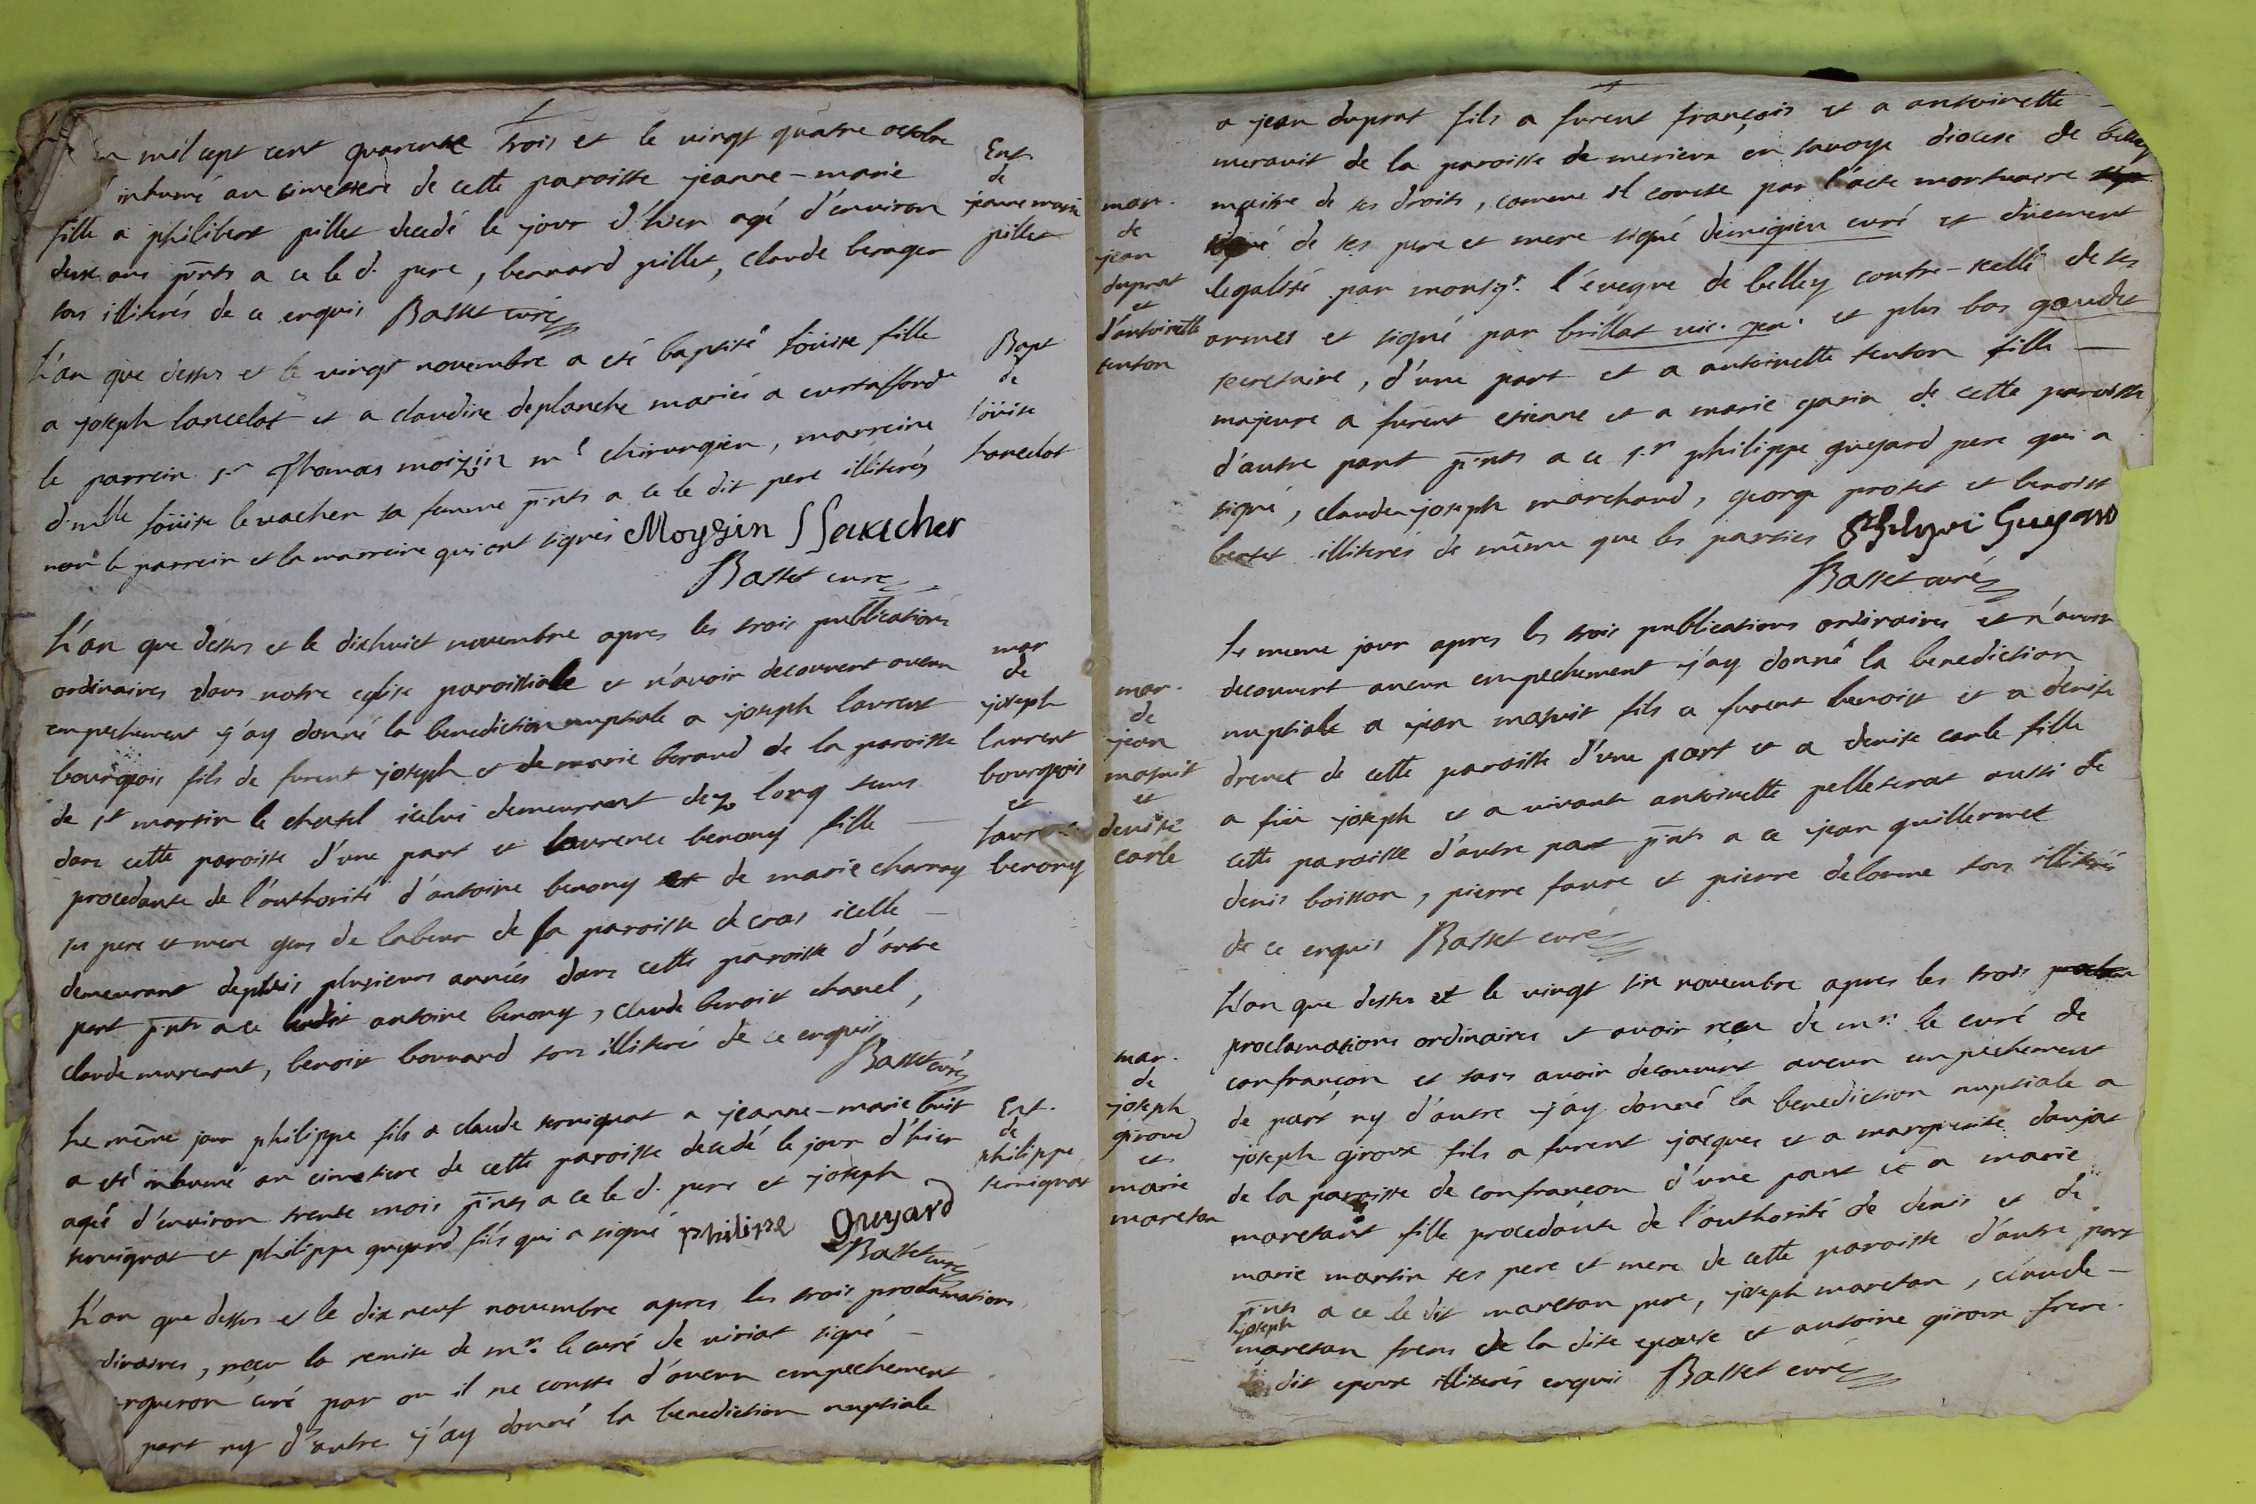 mil sept cent quarente trois et le vingt quatre octobre
inhumé au cimettere de cette paroisse jeanne-marie
fille a philibert pillet decedé le jour d'hier agé d'environ
deux ans pñts a ce le d. pere, bernard pillet, claude berager
tous illiterés de ce enquis Basset curé
Ent.
de
jeanne marie
pillet
L'an que dessus et le vingt novembre a eté baptisé loüise fille
a joseph lancelot et a claudine deplanche mariés a curtafford
le parrein sr Thomas moizin me chirurgien, marreine
d'mlle loüise levacher sa femme pñts a ce le dit pere illiterés
non le parrein et la marreine qui ont signés Moyzin L Levacher
Basset curé
Bapt
de
loüise
lancelot
L'an que dessus et le dixhuict novembre apres les trois publications
ordinaires dans notre eglise paroissiale et n'avoir decouvert aucun
empechement j'ay donné la benediction nuptiale a joseph laurent
bourgeois fils de furent joseph et de marie beraud de la paroisse
de st martin le chatel icelui demeurant dez long tems
dans cette paroisse d'une part et laurence benony fille
procedante de l'authorité d'antoine benony et de marie charnay
ses pere et mere gens de labeur de la paroisse de cras icelle
demeurant depuis plusieurs années dans cette paroisse d'autre
part pñts a ce ledit antoine benony, claude benoist chanel,
claude murcuant, benoist bouvard tous illiterés de ce enquis
Basset curé
mar
de
joseph
laurent
bourgeois
et
laurence
benony
Le même jour philippe fils a claude servignat a jeanne-marie buit
a eté inhumé au cimetiere de cette paroisse decedé le jour d'hier
agé d'environ trente mois pñts a ce le d. pere et joseph
servignat et philippe guyard fils qui a signé philipe guyard
Basset curé
Ent.
de
philippe
servignat
L'an que dessus et le dix neuf novembre apres les trois proclamations
ordinaires, reçu la remise de mr. le curé de viriat signé
curé par ou il ne conste d'aucun empechement
part ny d'autre j'ay donné la benediction nuptiale
a jean duprat fils a furent françois et a antoinette
meravit de la paroisse de merieux en savoye diocese de belley
maitre de ses droits, comme il conste par l'acte mortuaire
de ses pere et mere signé demigieu curé et düement
legalisé par monsgr. l'éveque de belley contre-scellé de ses
armes et signé par brillat vic. gen. et plus bas goudet
secretaire, d'une part et a antoinette tenton fille
majeure a furent etienne et a marie garin de cette paroisse
d'autre part pñts a ce sr philippe guyard pere qui a
signé, claude-joseph marchand, george protet et benoist
bertet illiterés de même que les parties Philippe Guyard
Basset curé
mar.
de
jean
duprat
et
d'antoinette
tenton
Le meme jour apres les trois publications ordinaires et n'avoir
decouvert aucun empechement j'ay donné la benediction
nuptiale a jean masuit fils a furent benoist et a denise
drevet de cette paroisse d'une part et a denise carle fille
a fût joseph et a vivante antoinette pelleterat aussi de
cette paroisse d'autre part pñts a ce jean guillermet
denis boisson, pierre favre et pierre delorme tous illiterés
de ce enquis Basset curé
mar.
de
jean
masuit
et
denise
carle
L'an que dessus et le vingt six novembre apres les trois
proclamations ordinaires et avoir reçu de mr. le curé de
confrançon et sans avoir decouvert aucun empechement
de part ny d'autre j'ay donné la benediction nuptiale a
joseph giroux fils a furent jacques et a marguerite danjat
de la paroisse de confrançon d'une part et a marie
maretant fille procedante de l'authorité de denis et de
marie martin ses pere et mere de cette paroisse d'autre part
pñts a ce le dit mareton pere, joseph mareton, claude-
joseph
mareton freres de la dite epouse et antoine giroux frere
dit epoux illiterés enquis Basset curé
mar.
de
joseph
giroud
et
marie
mareton